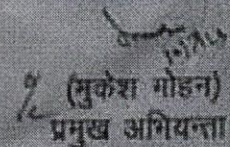 (मुकेश गोहन)
प्रमुख अभियन्ता